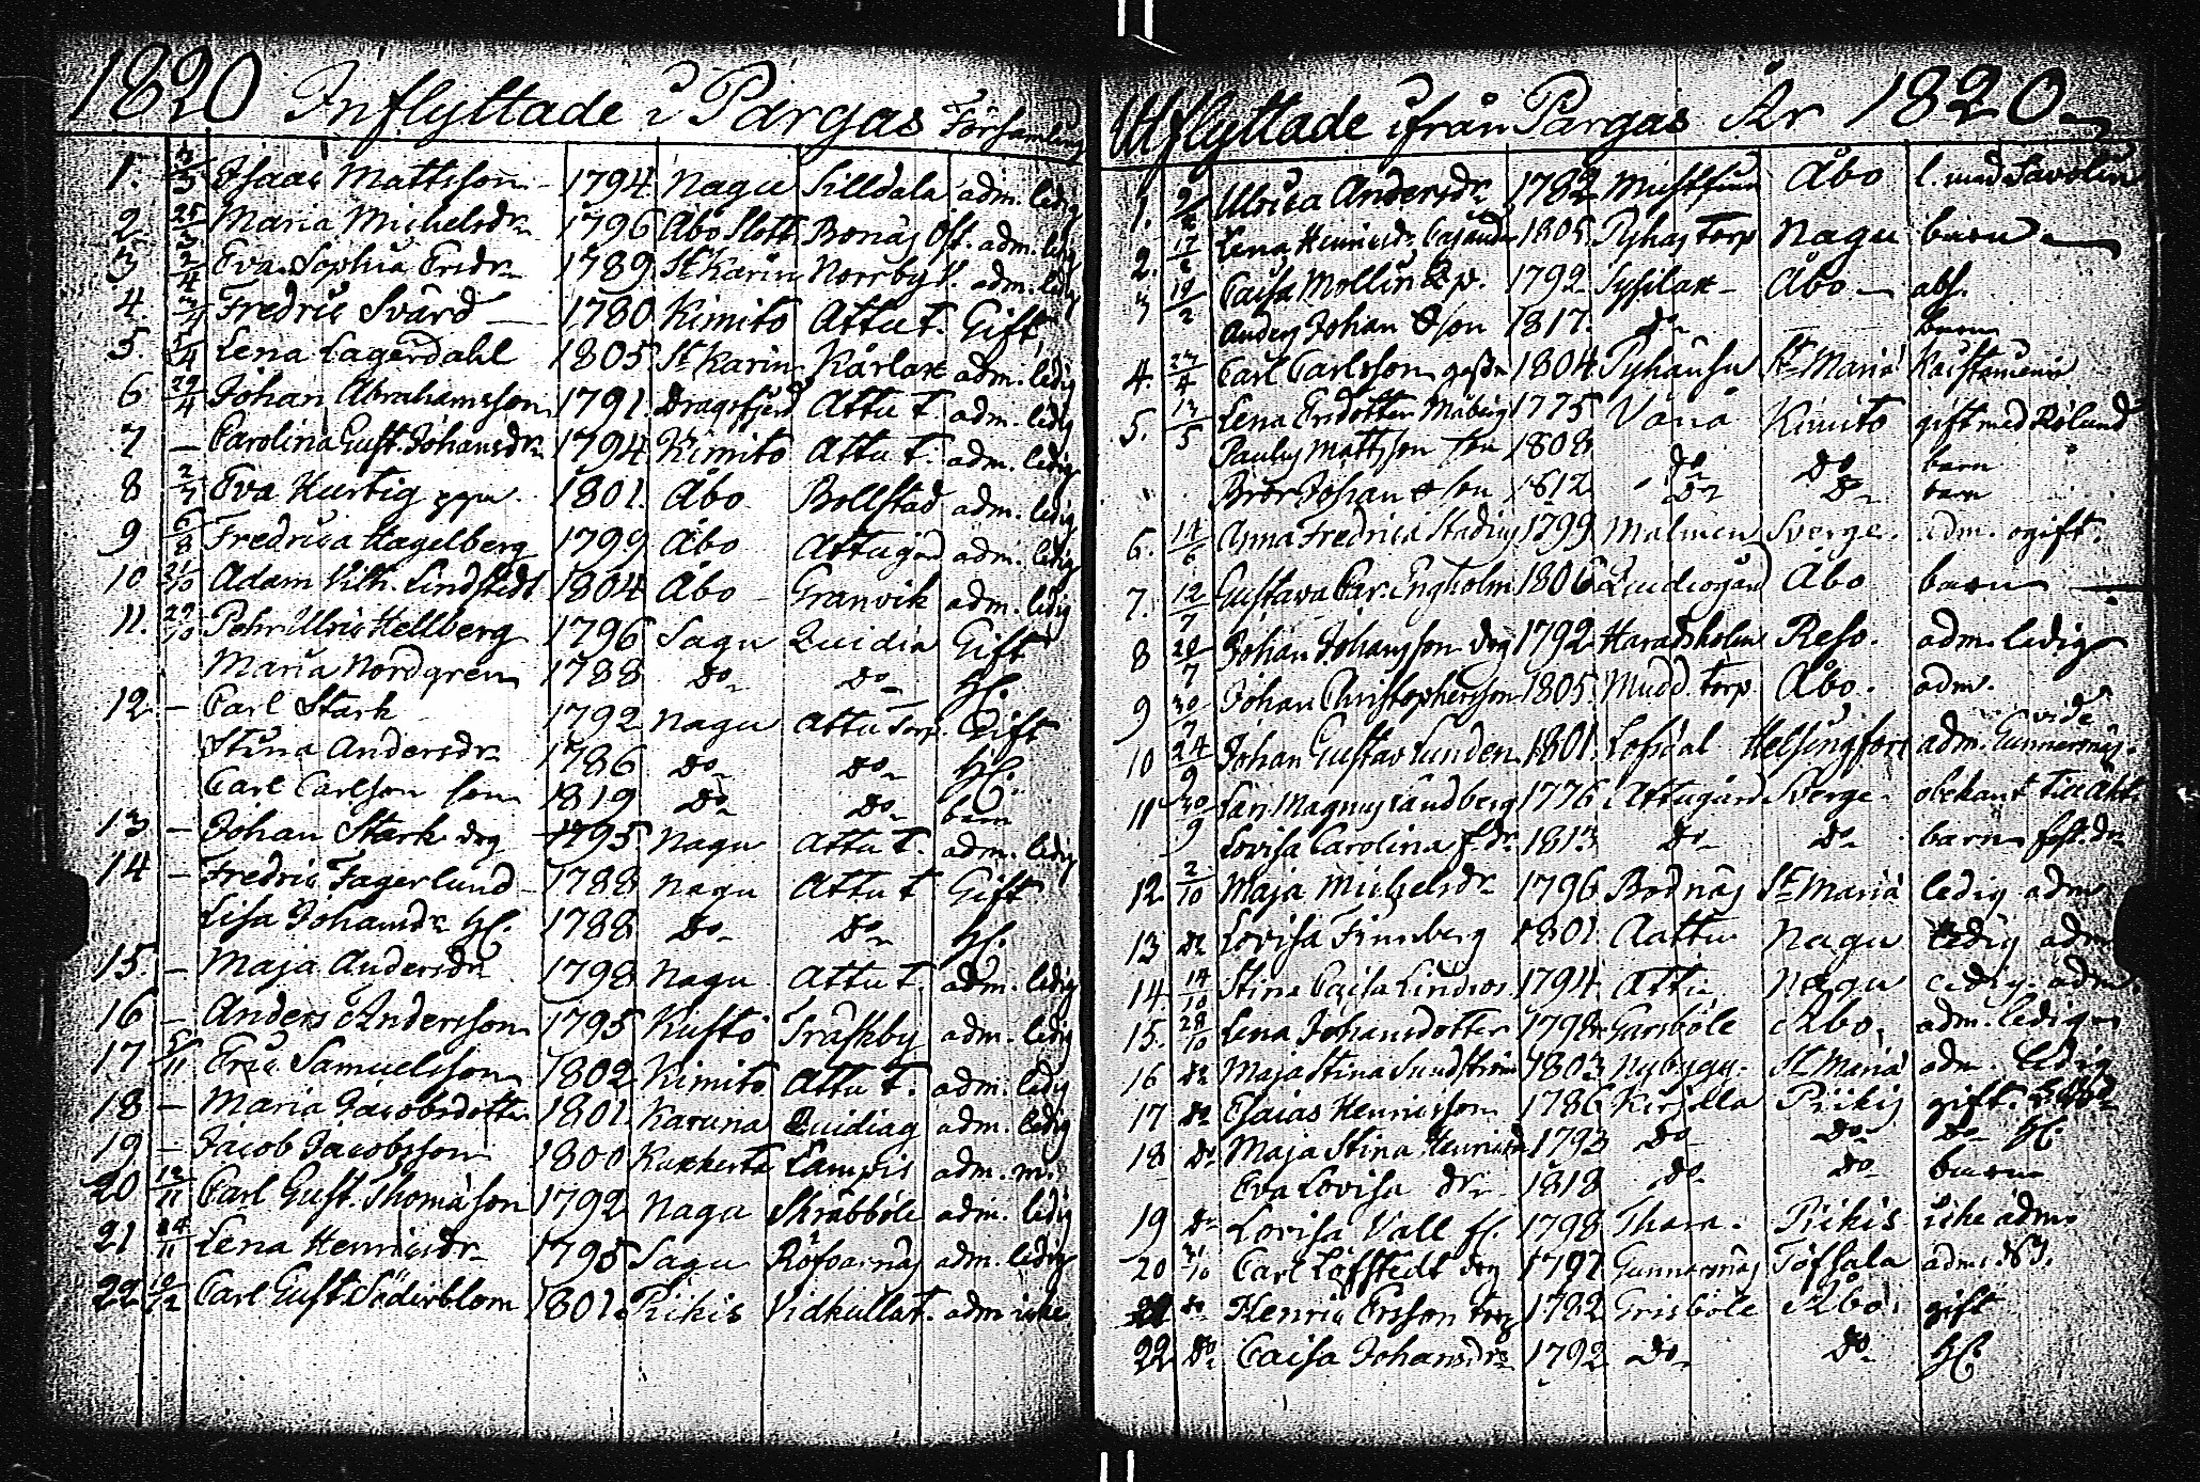 1820 Inflyttade i Pargas Församling
1. Isaac Mattsson 1794 Nagu Silldala adm. ledig
2. 25/3 Maria Michelsdr 1796 Åbo Slott Bonäs adm. ledig
3 2/4 Eva Sophia Ersdr 1789 St Karin Norrby adm. ledig
4. 3/4 Fredric Svärd 1780 Kimito Attu t. Gift
5. 5/4 Lena Lagerdahl 1805 St Karin Kårlax adm. ledig
6 29/4 Johan Abrahamsson 1791. Dragsfjerd Attu t adm. ledig
7 — Carolina Gust. Johansdr 1794 Kimito Attu t. adm. ledig
8 2/7 Eva Hurtig 1801. Åbo Bollstad adm. ledig
9 6/8 Fredrica Hagelberg 1799 Åbo Attugård adm. ledig
10 21/10 Adam Vilh. Lindstedt 1804 Åbo Granvik adm. ledig
11. 29/10 Pehr Ulric Hellberg 1796 Sagu Quidia Gift
Maria Nordgren 1788 Do Do H.
12 — Carl Stark 1792 Nagu Attu torp Gift
Stina Andersdr 1786 Do Do H.
Carl Carlson son 1819 Do Do barn
13 — Johan Stark drg 1795 Nagu Attu t. adm. ledig
14 — Fredric Fagerlund 1788 Nagu Attu t Gift
Lisa Johansdr H. 1788 Do Do H.
15. — Maja Andersdr 1798 Nagu Attu t. adm. ledig
16 — Anders Andersson 1795 Kustö Träskby adm. ledig
17 5/11 Eric Samuelsson 1802 Kimito Attu t. adm. ledig
18 — Maria Jacobsdotter 1801. Karuna Quidiag adm. ledig
19 — Jacob Jacobsson 1800 Lampis adm. m.
20 12/11 Carl Gust. Thomasson 1792 Nagu Skräbböle adm. ledig
21 24/11 Lena Henricsdr 1795 Sagu Röfvarnäs adm. ledig
22 Carl Gust. Söderblom 1801. Pikis Vidkulla t. adm icke
Utflyttade ifrån Pargas År 1820
1. 2/2 Ulrica Andersdr 1782 Mustfinn Åbo l. med Savolin
2. 17/2 Lena Henricsdr Cajander 1805 Pyhas torp Nagu barn
3 19/2 Caisa Mollin 1792 Sysilax Åbo abs.
Anders Johan son 1817. Do barn
4. 27/4 Carl Carlsson 1804 Pyhänsu St Maria
5. 13/5 Lena Ersdotter Måberg 1775 Vånå Kimito gift med Rölund
Paulus Mattsson son 1808 Do Do barn
Bror Johan son 1812 Do Do barn
6. 14/6 Anna Fredrica Stadius 1799 Malmen Sverge. adm. ogift.
7. 12/7 Gustava Car. Engholm 1806 Åbo barn
8 28/7 Johan Johansson drg 1792 Haradsholm Reso. adm. ledig
9 30/7 Johan Christophersson 1805. Mudd. torp Åbo. adm.
10 24/9 Johan Gustav Lunden 1801. Lofsdal Helsingfors adm. vide Gunnarsnäs.
11 30/9 Magnus Sandberg 1776 Attugård Sverge.
Lovisa Carolina dr 1813 Do Do barn
12. 2/10 Maja Michelsdr 1796 Bodnäs St Maria ledig adm
13 Do Lovisa Finnberg 1801. Aattu Nagu ledig adm
14 14/10 Stina Caisa Lindroos 1794 Attu Nagu ledig. adm.
15. 28/10 Lena Johansdotter 1798 Garsböle Åbo. adm. ledig
16 Do Maja Stina Sundström 1803 Nybygg. St Maria adm. ledig
17 Do Esaias Henricsson 1786 Kirjola Pikis gift.
18 Do Maja Stina Henricsdr 1793 Do Do Do H.
Eva Lovisa dr 1818 Do Do barn
19 Do Lovisa Vall 1798 Pikis icke adm.
20 31/10 Carl Löfstedt drg 1797 Gunnarsnäs Töfsala adm.
21 Do Henric Ersson torp 1782 Grisböle Åbo. gift
22 Do Caisa Johansdr 1792 Do Do H.